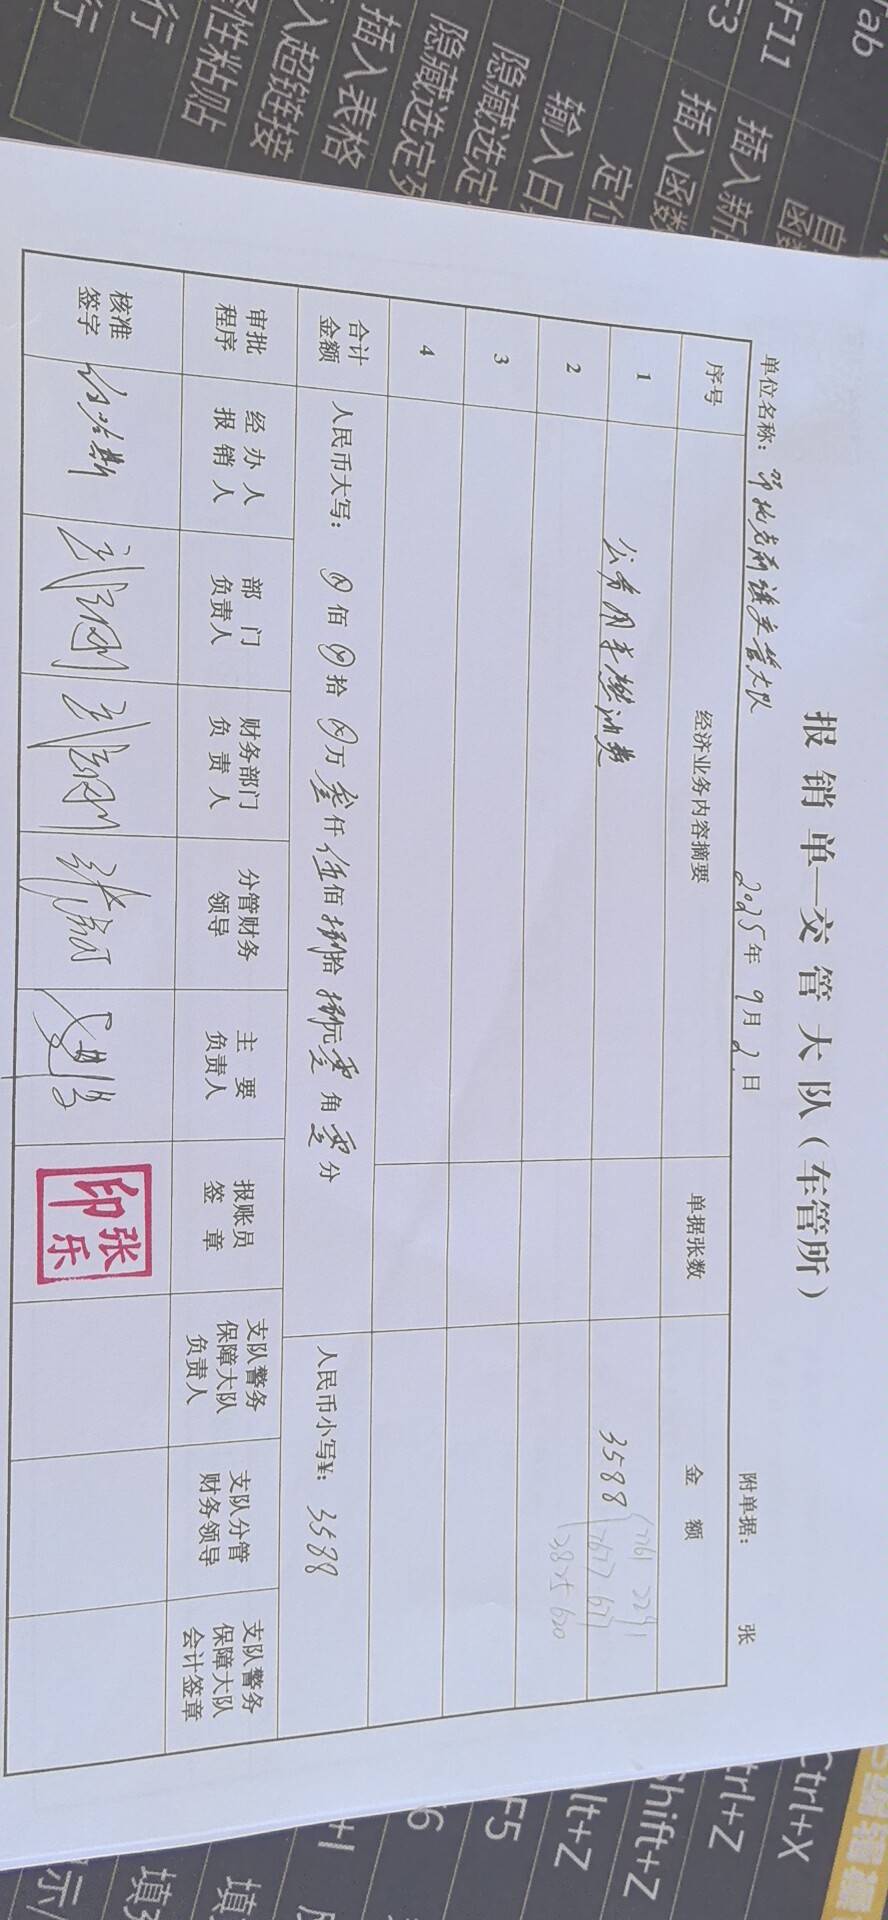 报销单—交管大队（车管所）
单位名称：鄂托克前旗交管大队 2025年9月2日 附单据： 张
序号 经济业务内容摘要 单据张数 金额
1 公务用车燃油费 3588
2
3
4
合计金额 人民币大写：⊗佰⊗拾⊗万叁仟伍佰捌拾捌元零角零分 人民币小写¥：3588
审批程序 经办人报销人 部门负责人 财务部门负责人 分管财务领导 主要负责人 报账员签章 支队警务保障大队负责人 支队分管财务领导 支队警务保障大队会计签章
核准签字
张乐印
Tab
F11
F3
插入函数
定位
隐藏选定
插入表格
插入超链接
选择性粘贴
Ctrl+X
Ctrl+Z
Shift+Z
Alt+Z
F5